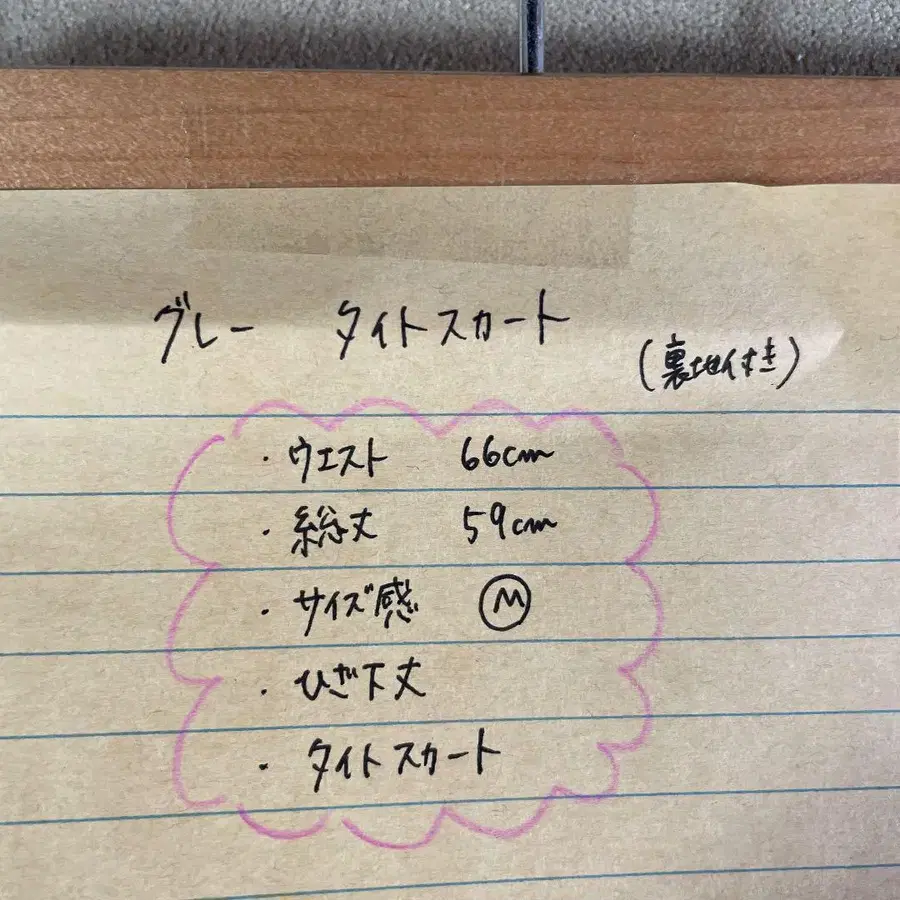 グレー タイトスカート
(裏地付き)
・ウエスト 66cm
・総丈 59cm
・サイズ感 Ⓜ
・ひざ下丈
・タイトスカート